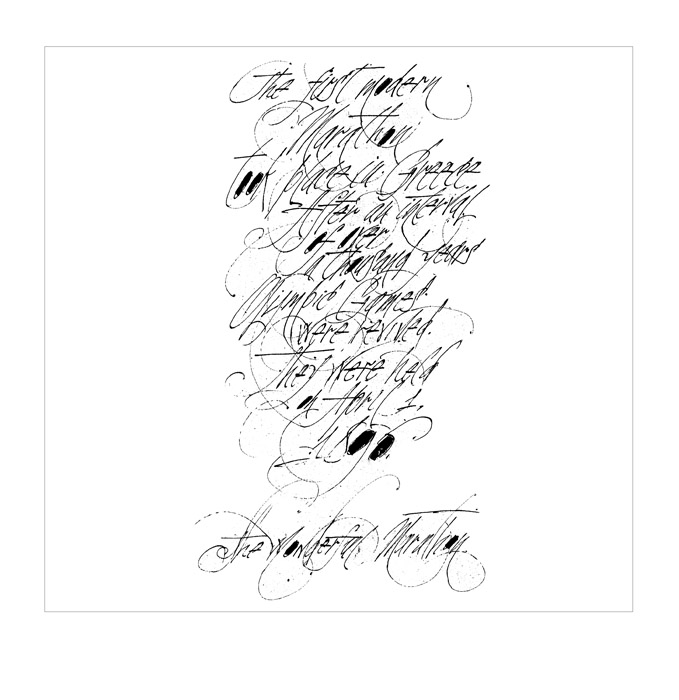 The first modern
Marathon
took place in Greece
After an interval
of over
a thousand years
Olympic Games
were revived.
They were held
on April 1,
1896.
The wonderful Marathon